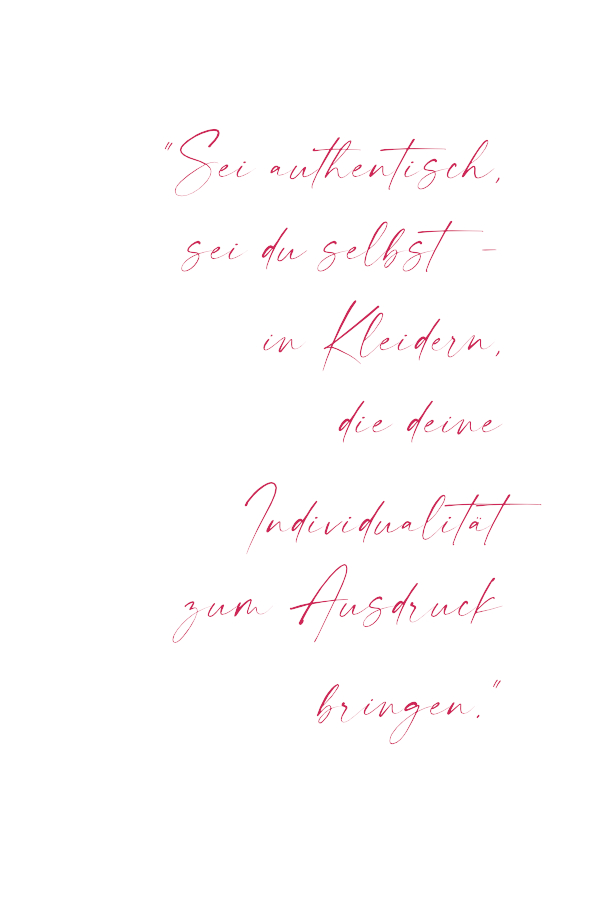 "Sei authentisch,
sei du selbst -
in Kleidern,
die deine
Individualität
zum Ausdruck
bringen."